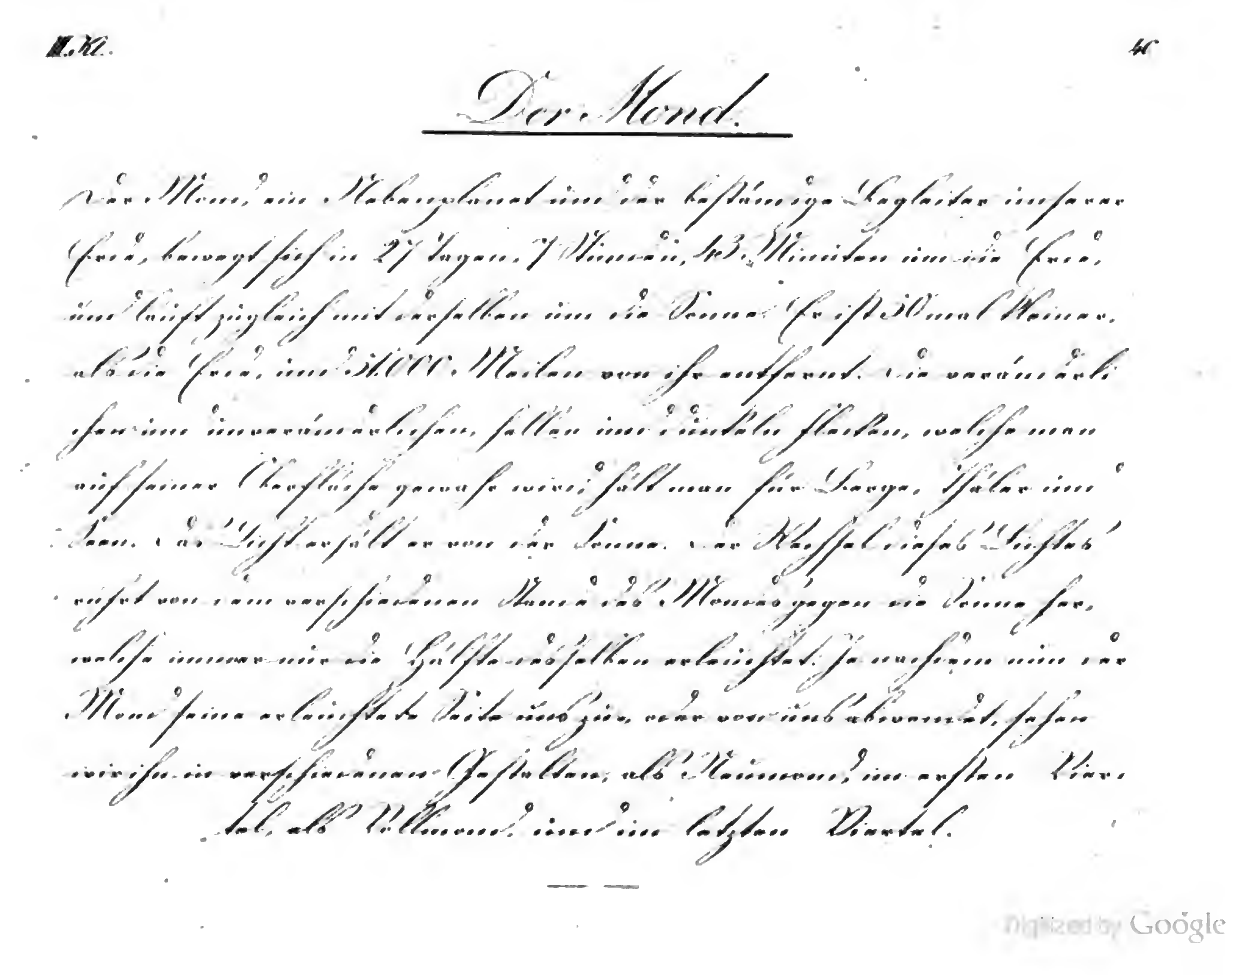 III. Kl.
46
Der Mond.
Der Mond, ein Nebenplanet und der beständige Begleiter unserer
Erde, bewegt sich in 27 Tagen, 7 Stunden, 43 Minuten um die Erde,
und läuft zugleich mit derselben um die Sonne. Er ist 50 mal kleiner,
als die Erde, und 51000 Meilen von ihr entfernt. Die veränderli
chen und unveränderlichen, hellen und dunkeln Flecken, welche man
auf seiner Oberfläche gewahr wird, hält man für Berge, Thäler und
Seen. Das Licht erhält er von der Sonne. Der Wechsel dieses Lichtes
rührt von dem verschiedenen Stande des Mondes gegen die Sonne her,
welche immer nur die Hälfte desselben erleuchtet. Je nachdem nun der
Mond seine erleuchtete Seite uns zu-, oder von uns abwendet, sehen
wir ihn in verschiedenen Gestalten, als Neumond, im ersten Vier-
tel, als Vollmond, und im letzten Viertel.
Digitized by Google